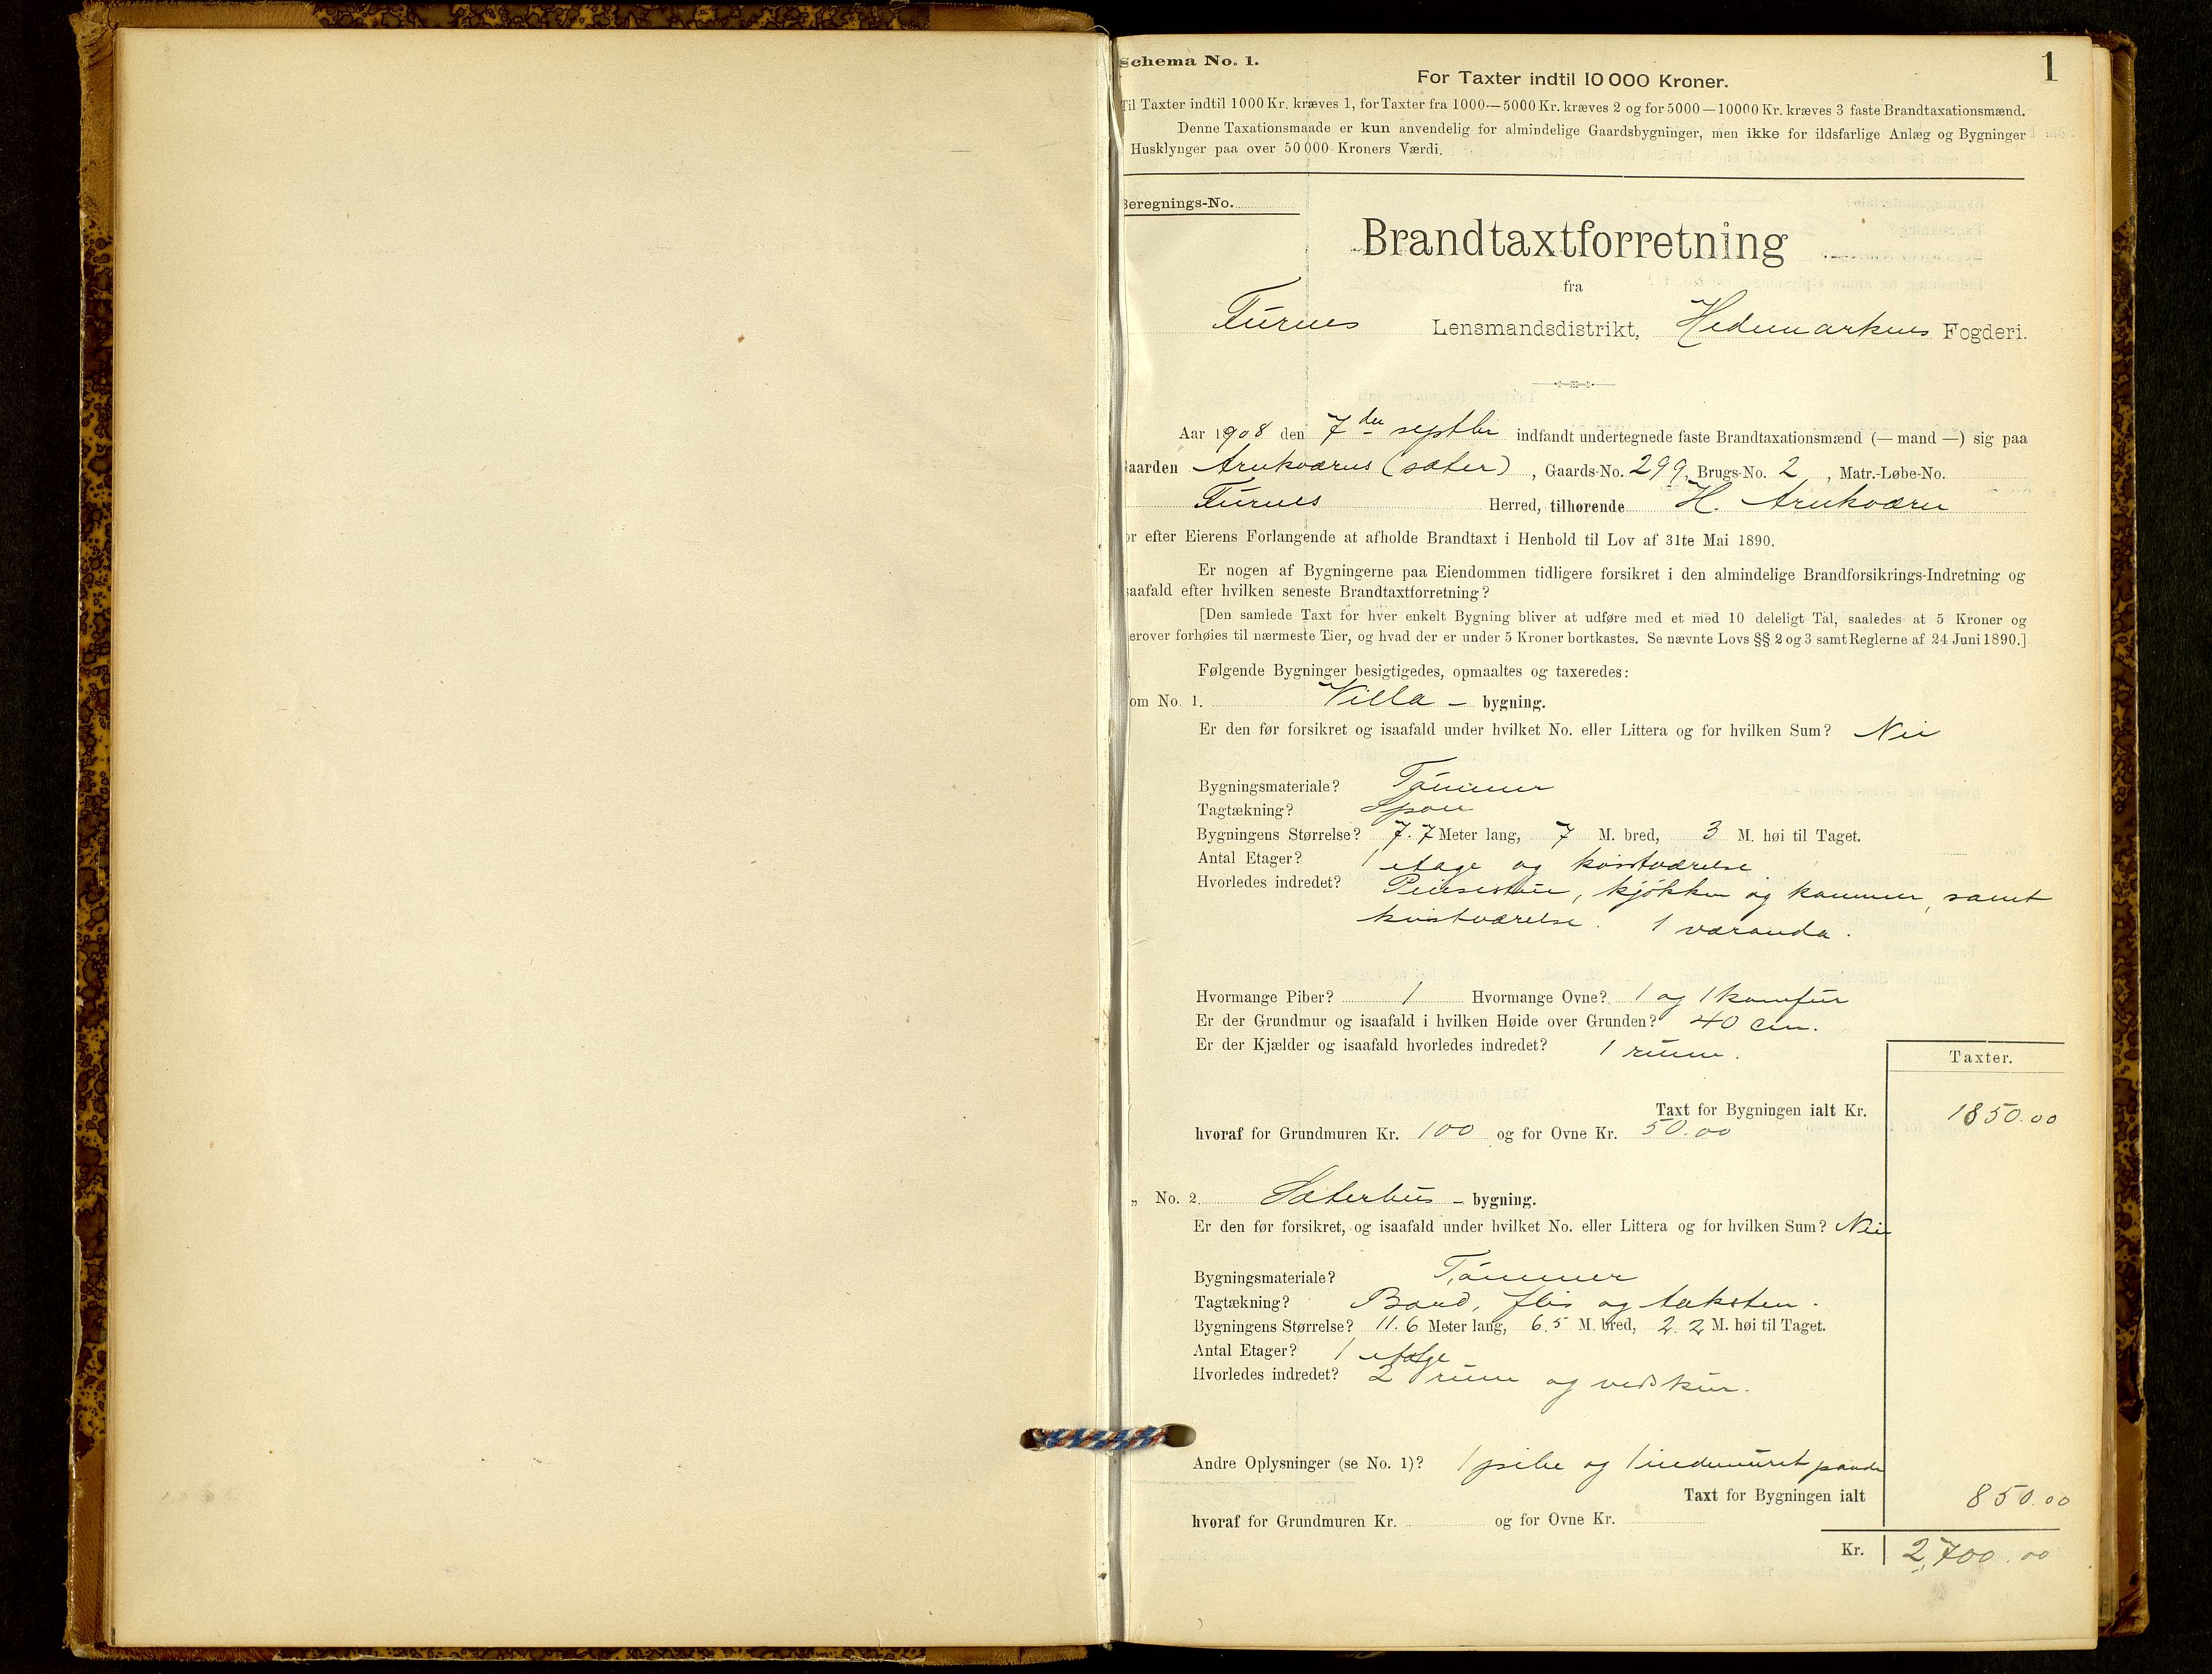 Schema No. 1.
1
For Taxter indtil 10 000 Kroner.
Til Taxter indtil 1000 Kr. kræves 1, for Taxter fra 1000—5000 Kr. kræves 2 og for 5000—10000 Kr. kræves 3 faste Brandtaxationsmænd.
Denne Taxationsmaade er kun anvendelig for almindelige Gaardsbygninger, men ikke for ildsfarlige Anlæg og Bygninger
Husklynger paa over 50 000 Kroners Værdi.
Beregnings-No.
Brandtaxtforretning
fra
Furnes Lensmandsdistrikt, Hedemarkens Fogderi.
Aar 1908 den 7de septbr indfandt undertegnede faste Brandtaxationsmænd (— mand —) sig paa
aarden Arnkværns (sæter), Gaards-No. 299, Brugs-No. 2, Matr.-Løbe-No.
Furnes Herred, tilhørende H. Arnkværn
or efter Eierens Forlangende at afholde Brandtaxt i Henhold til Lov af 31te Mai 1890.
Er nogen af Bygningerne paa Eiendommen tidligere forsikret i den almindelige Brandforsikrings-Indretning og
saafald efter hvilken seneste Brandtaxtforretning?
[Den samlede Taxt for hver enkelt Bygning bliver at udføre med et med 10 deleligt Tal, saaledes at 5 Kroner og
erover forhøies til nærmeste Tier, og hvad der er under 5 Kroner bortkastes. Se nævnte Lovs §§ 2 og 3 samt Reglerne af 24 Juni 1890.]
Følgende Bygninger besigtigedes, opmaaltes og taxeredes:
om No. 1. Villa - bygning.
Er den før forsikret og isaafald under hvilket No. eller Littera og for hvilken Sum? Nei
Bygningsmateriale? Tømmer
Tagtækning? Spon
Bygningens Størrelse? 7.7 Meter lang, 7 M. bred, 3 M. høi til Taget.
Antal Etager? 1 etage og kvistværelse
Hvorledes indredet? Peisestue, kjøkken og kammer, samt
kvistværelse. 1 væranda.
Hvormange Piber? 1 Hvormange Ovne? 1 og 1 komfur
Er der Grundmur og isaafald i hvilken Høide over Grunden? 40 cm.
Er der Kjælder og isaafald hvorledes indredet? 1 rum.
Taxter.
Taxt for Bygningen ialt Kr. 1850.00
hvoraf for Grundmuren Kr. 100 og for Ovne Kr. 50.00
„ No. 2 Sæterhus - bygning.
Er den før forsikret, og isaafald under hvilket No. eller Littera og for hvilken Sum? Nei
Bygningsmateriale? Tømmer
Tagtækning? Bord, flis og taksten.
Bygningens Størrelse? 11.6 Meter lang, 6.5 M. bred, 2.2 M. høi til Taget.
Antal Etager? 1 etage
Hvorledes indredet? 2 rum og vedskur.
Andre Oplysninger (se No. 1)? 1 pibe og 1 indemuret pande
Taxt for Bygningen ialt 850.00
hvoraf for Grundmuren Kr. og for Ovne Kr.
Kr. 2,700.00